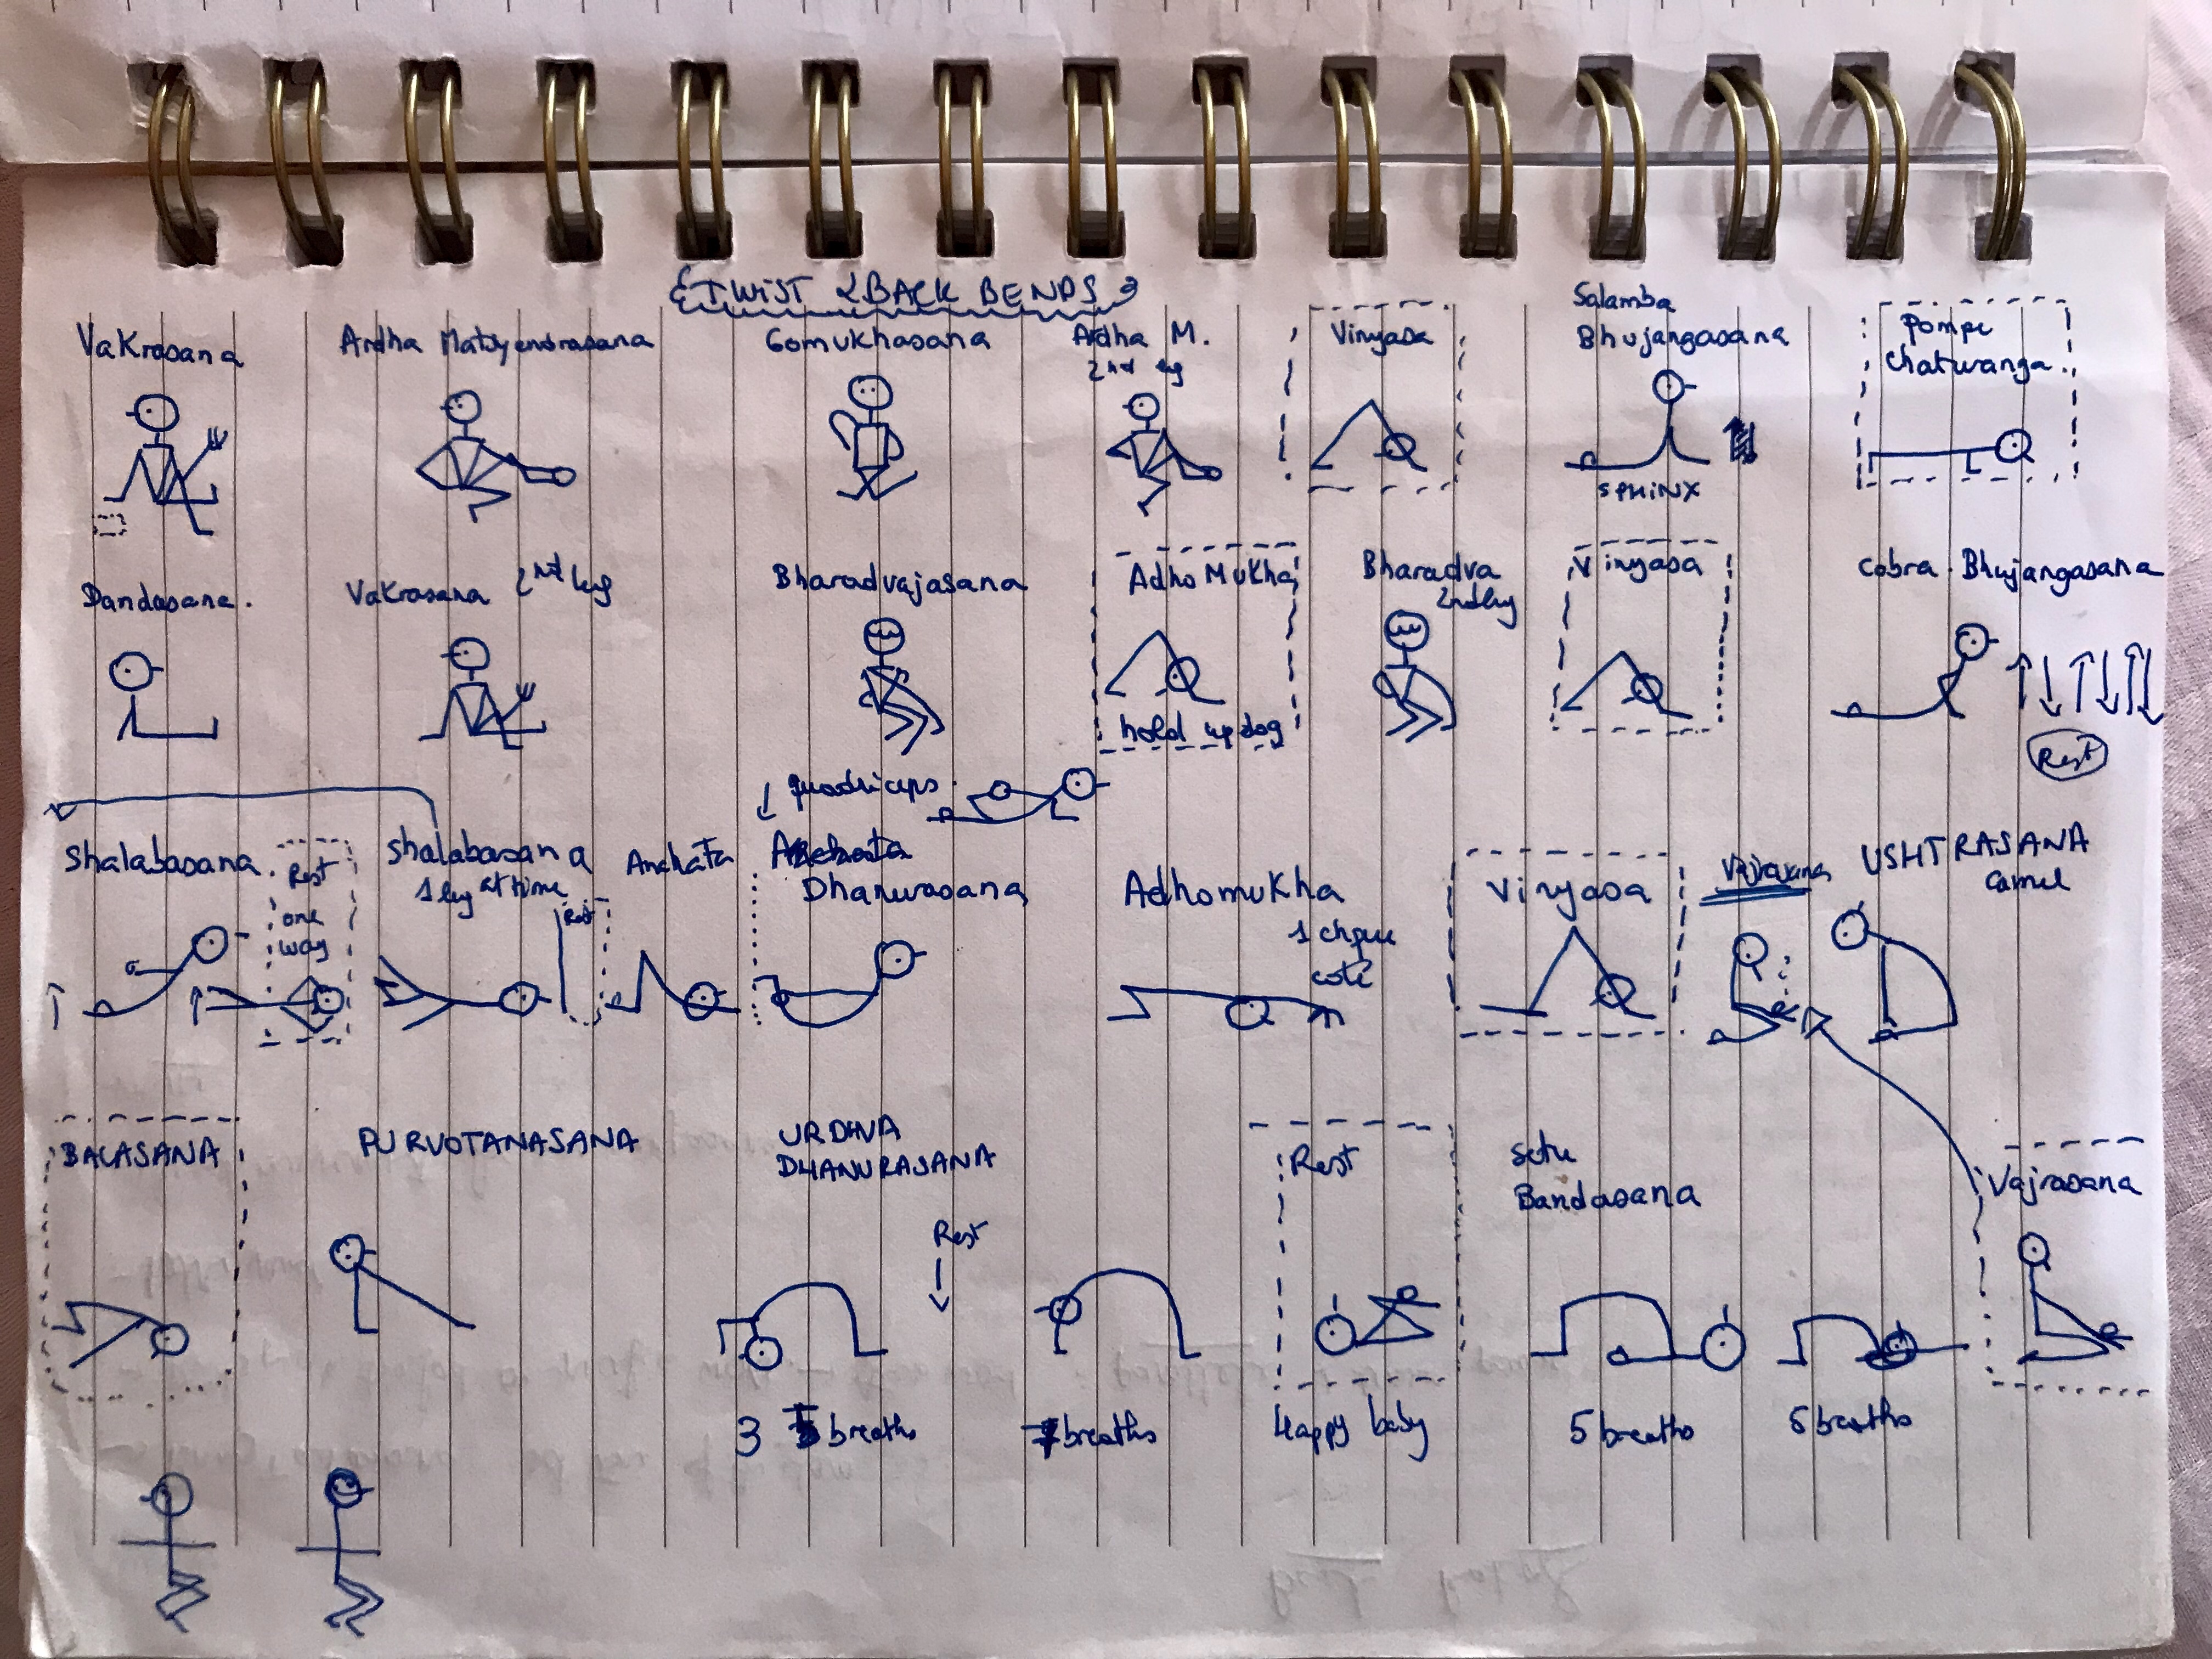 TWIST & BACK BENDS
Vakrasana
Ardha Matsyendrasana
Gomukhasana
Ardha M.
2nd leg
Vinyasa
Salamba
Bhujangasana
SPHINX
Pompe
Chatwanga.
Dandasana.
Vakrasana 2nd leg
Bharadvajasana
Adho Mukha
hold updog
Bharadva
2nd leg
Vinyasa
Cobra. Bhujangasana
Rest
quadriceps.
Shalabasana.
Rest
one
way
Shalabasana
1 leg at time
Rest
Anahata
Dhanurasana
Adhomukha
1 chque
coté
Vinyasa
Vajrasana
USHTRASANA
Camel
BALASANA
PURVOTANASANA
URDHVA
DHANURASANA
Rest
3 breaths
breaths
Rest
Happy baby
Setu
Bandasana
5 breaths
5 breaths
Vajrasana